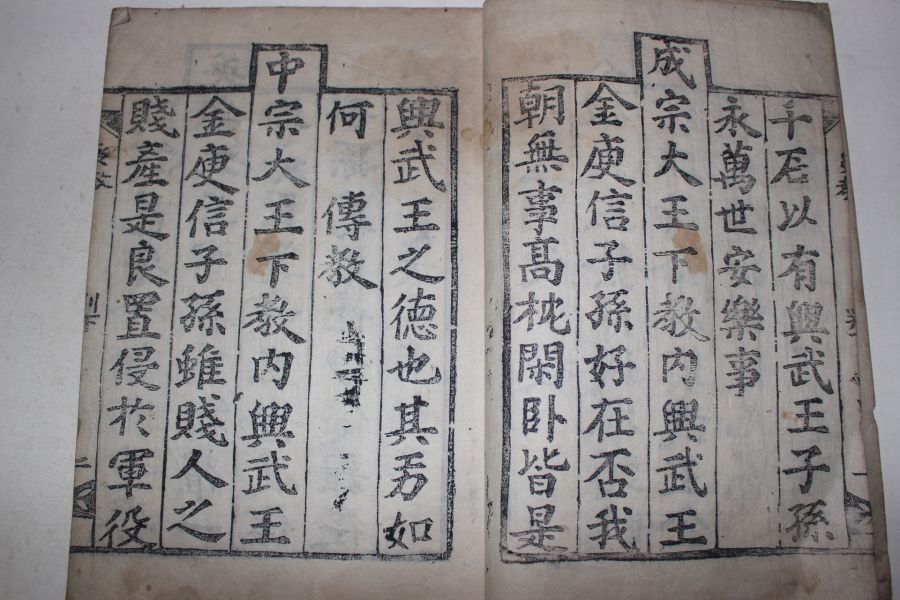 千石以有興武王子孫
永萬世安樂事
成宗大王下教內興武王
金庾信子孫好在否我
朝無事高枕閑卧皆是
興武王之德也其功如
何 傳教
中宗大王下教內興武王
金庾信子孫雖賤人之
賤產是良置侵於軍役